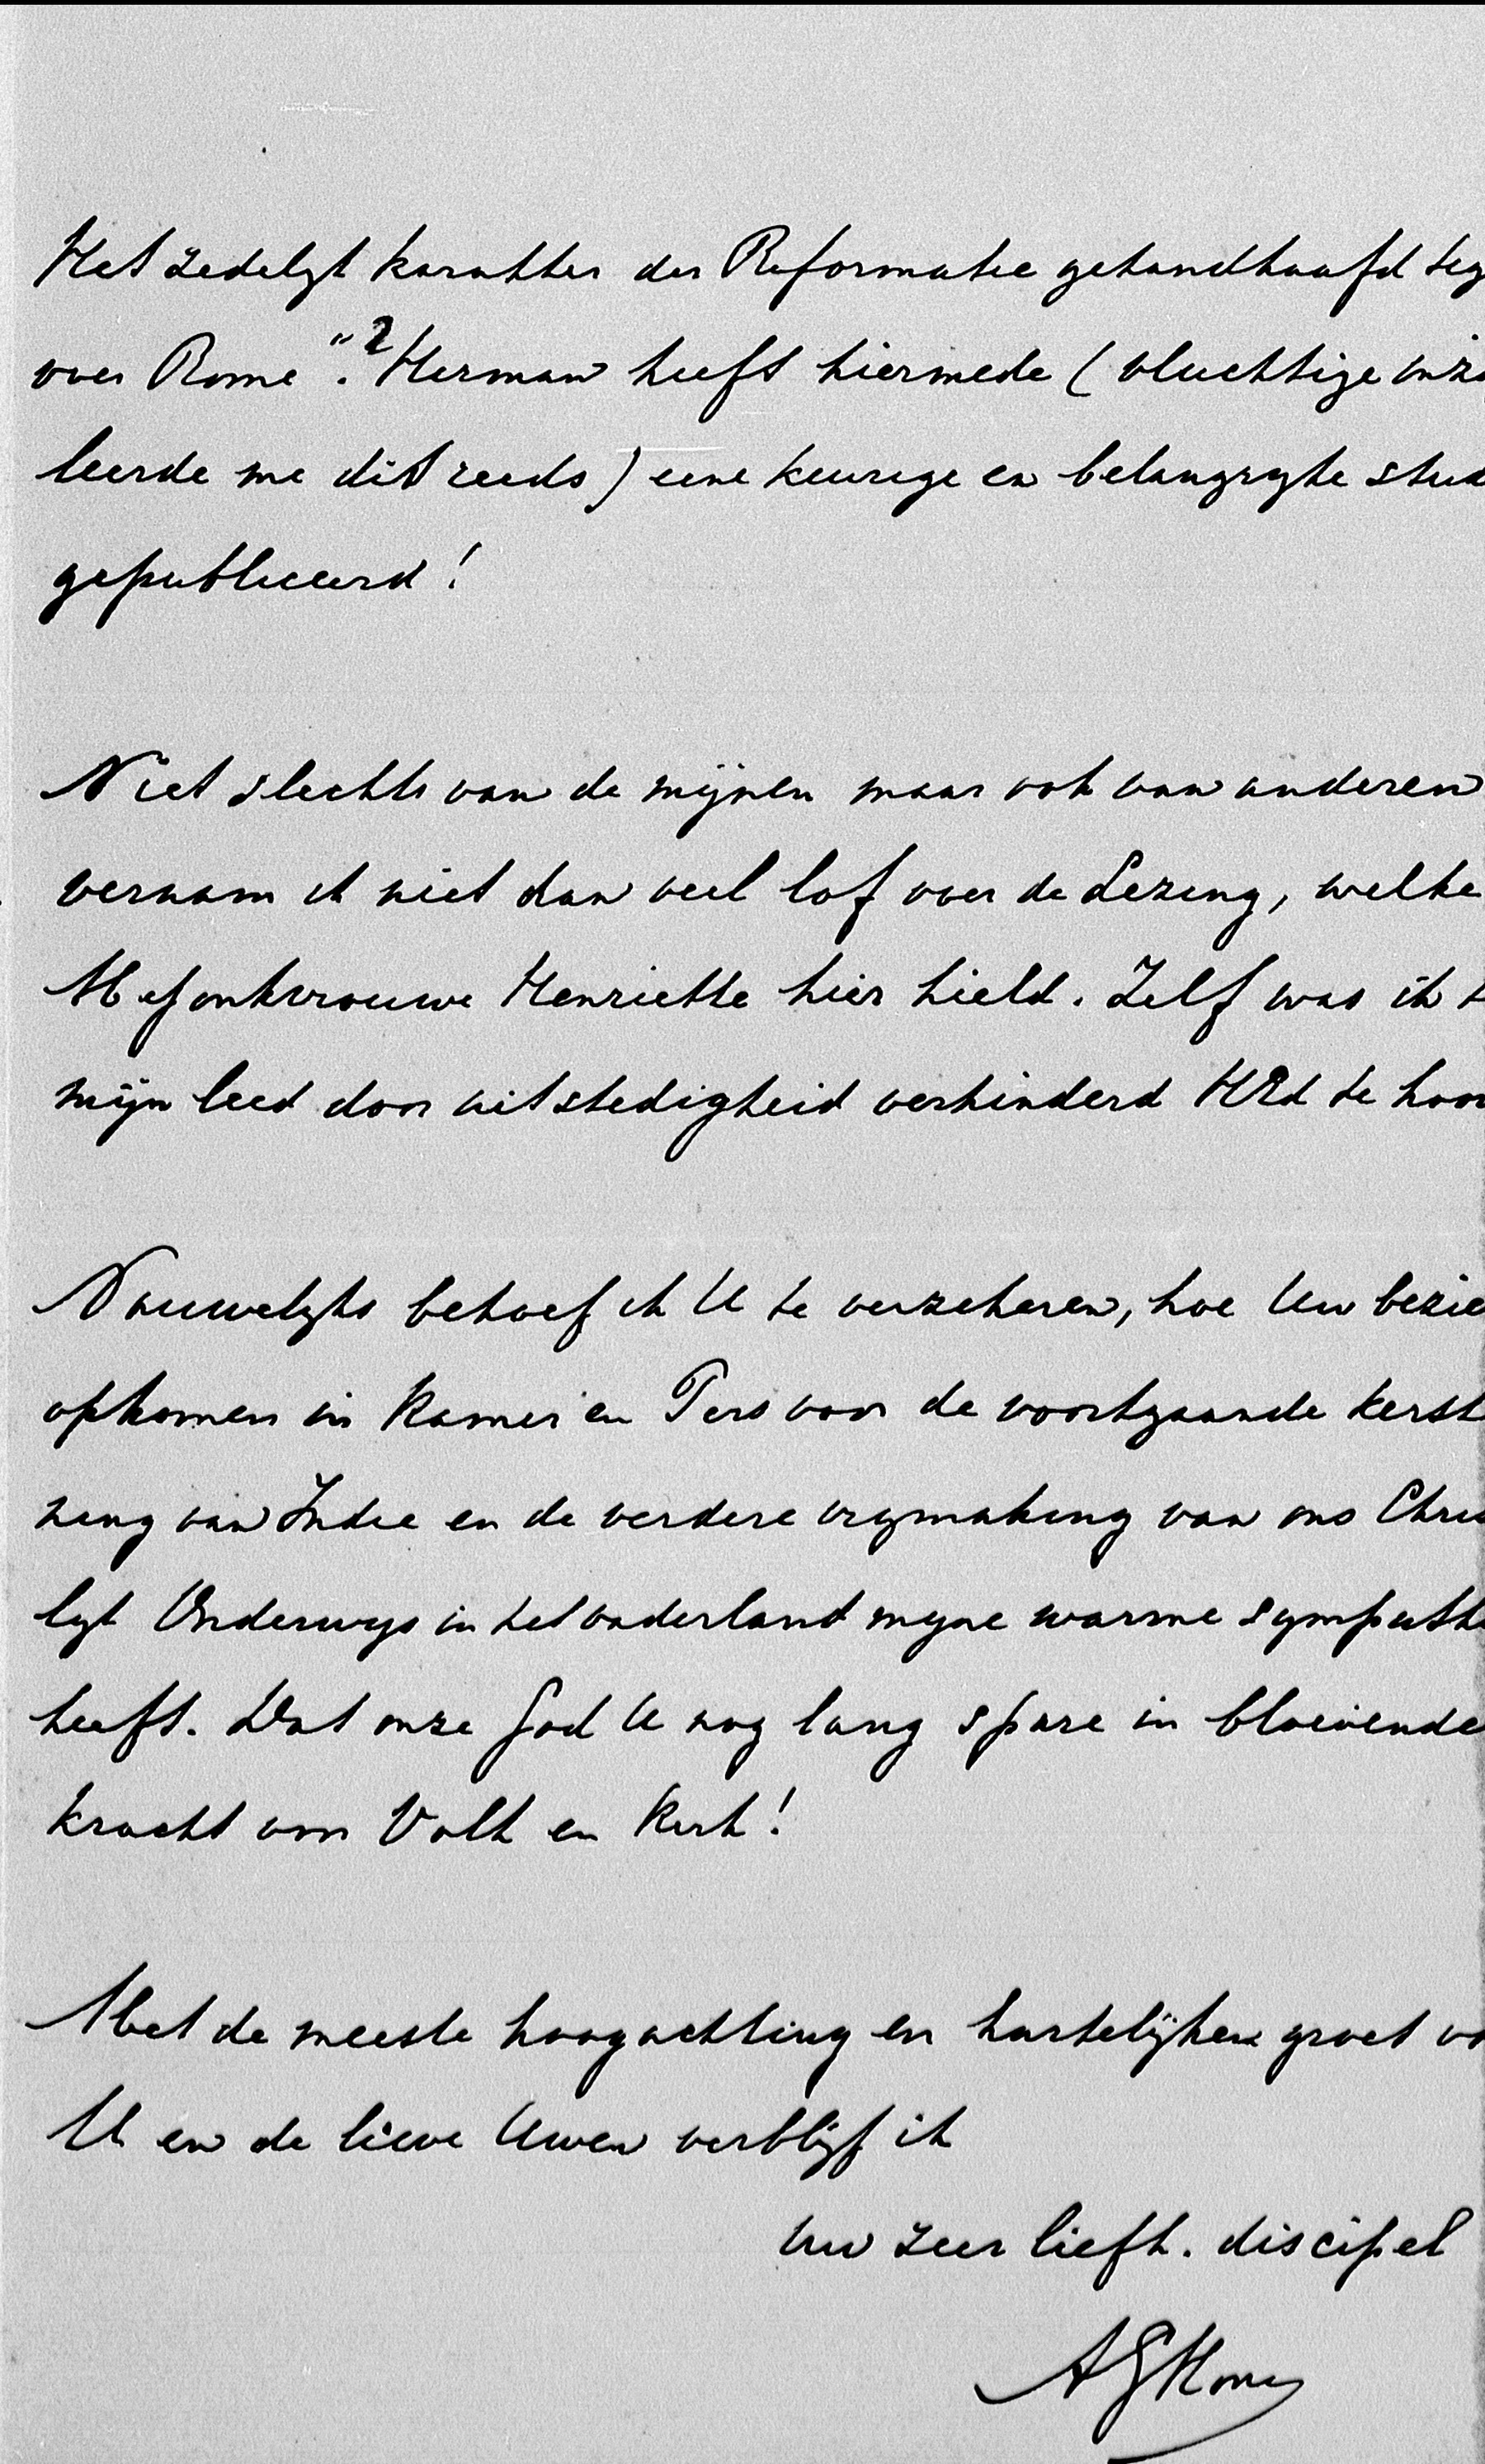 Het zedelyk karakter der Reformatie gehandhaafd teg
over Rome". 2 Herman heeft hiermede (vluchtige inz
leerde me dit reeds) eene keurige en belangryke stud
gepubliceerd!
Niet slechts van de mijnen maar ook van anderen
vernam ik niet dan veel lof over de Lezing, welke
Mejonkvrouwe Henriette hier hield. Zelf was ik t
mijn leed door uitstedigheid verhinderd HEd te hoor
Nauwelyks behoef ik U te verzekeren, hoe Uw bezie
opkomen in Kamer en Pers voor de voortgaande kerst
ning van Indie en de verdere vrymaking van ons Chris
lyk Onderwys in het vaderland myne warme sympath
heeft. Dat onze God U nog lang spare in bloeiende
kracht voor Volk en Kerk!
Met de meeste hoogachting en hartelijken groet vo
U en de lieve Uwen verblijf ik
Uw zeer liefh. discipel
AGHonig